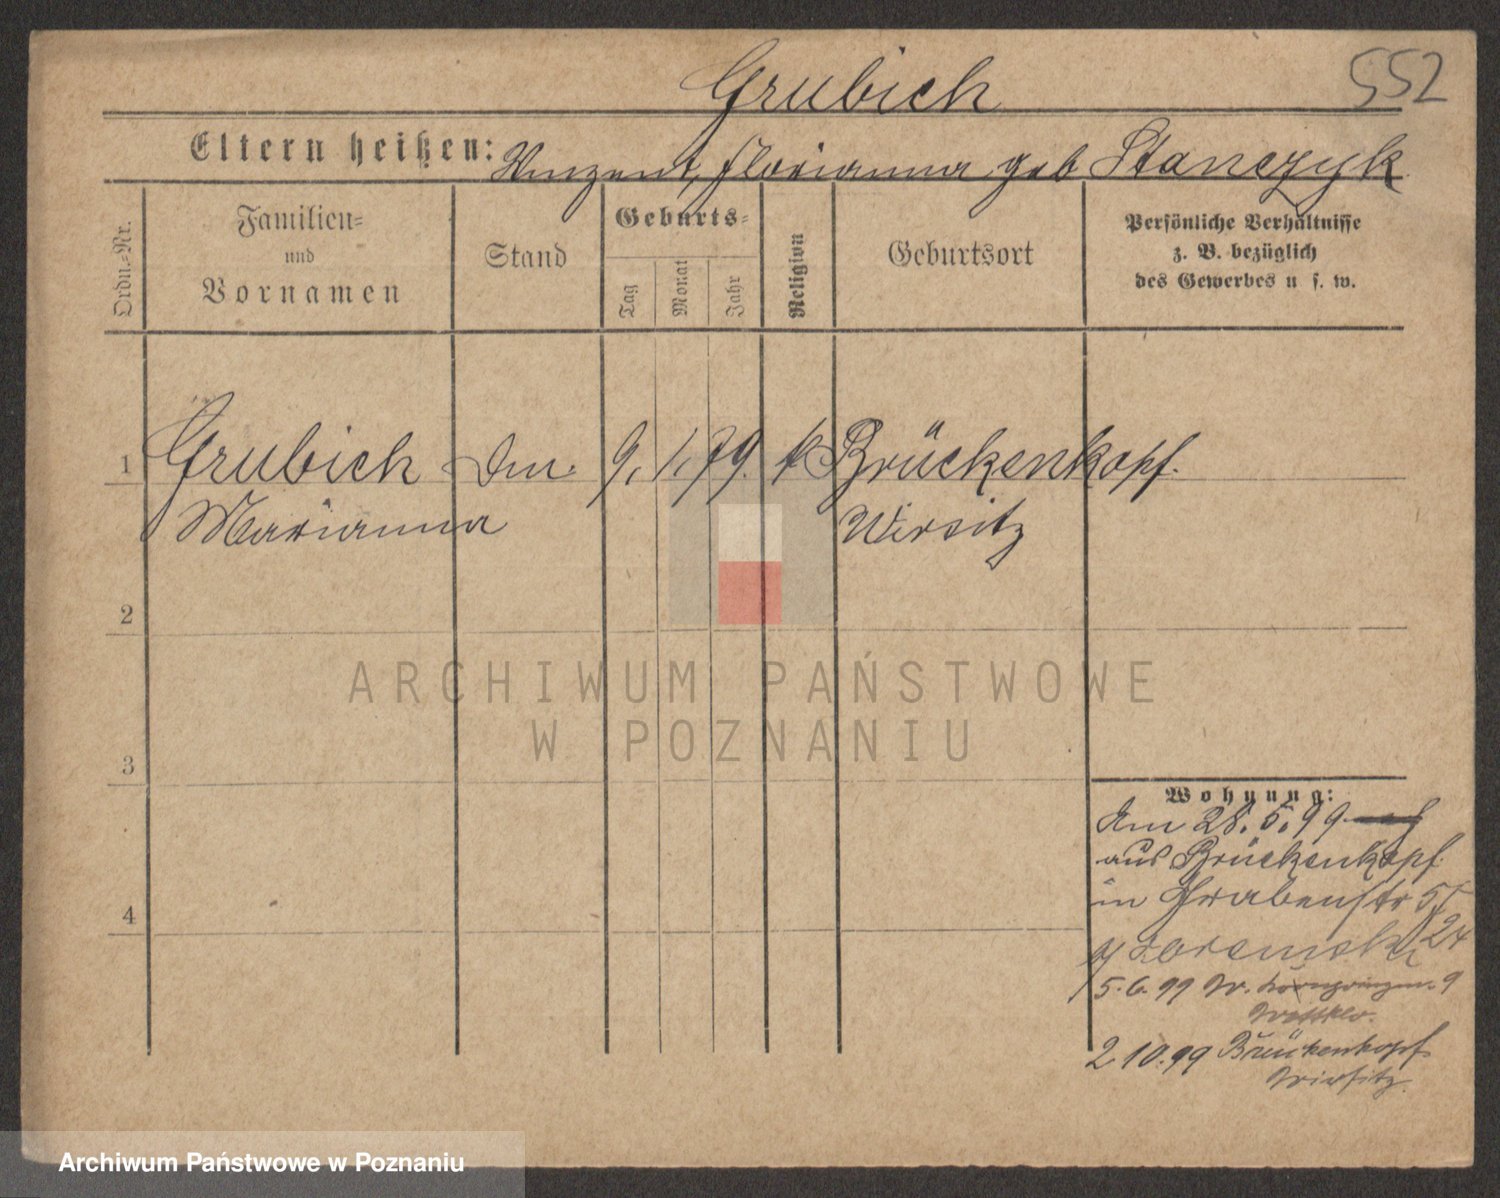 552
Grubich
Eltern heißen: Vinzent, Florianna geb Stanczyk
Ordn.-Nr.
Familien-
und
Vornamen
Stand
Geburts-
Tag
Monat
Jahr
Religion
Geburtsort
Persönliche Verhältnisse
z. B. bezüglich
des Gewerbes u s. w.
1 Grubich 9. 1. 79. k Brückenkopf.
Marianna Wirsitz
2
3
4
ARCHIWUM PAŃSTWOWE
W POZNANIU
Wohnung:
Am 28. 5. 99
aus Brückenkopf
in Grabenstr 5
24
5. 6. 99 9
2 10. 99 Brückenkopf
Wirsitz.
Archiwum Państwowe w Poznaniu